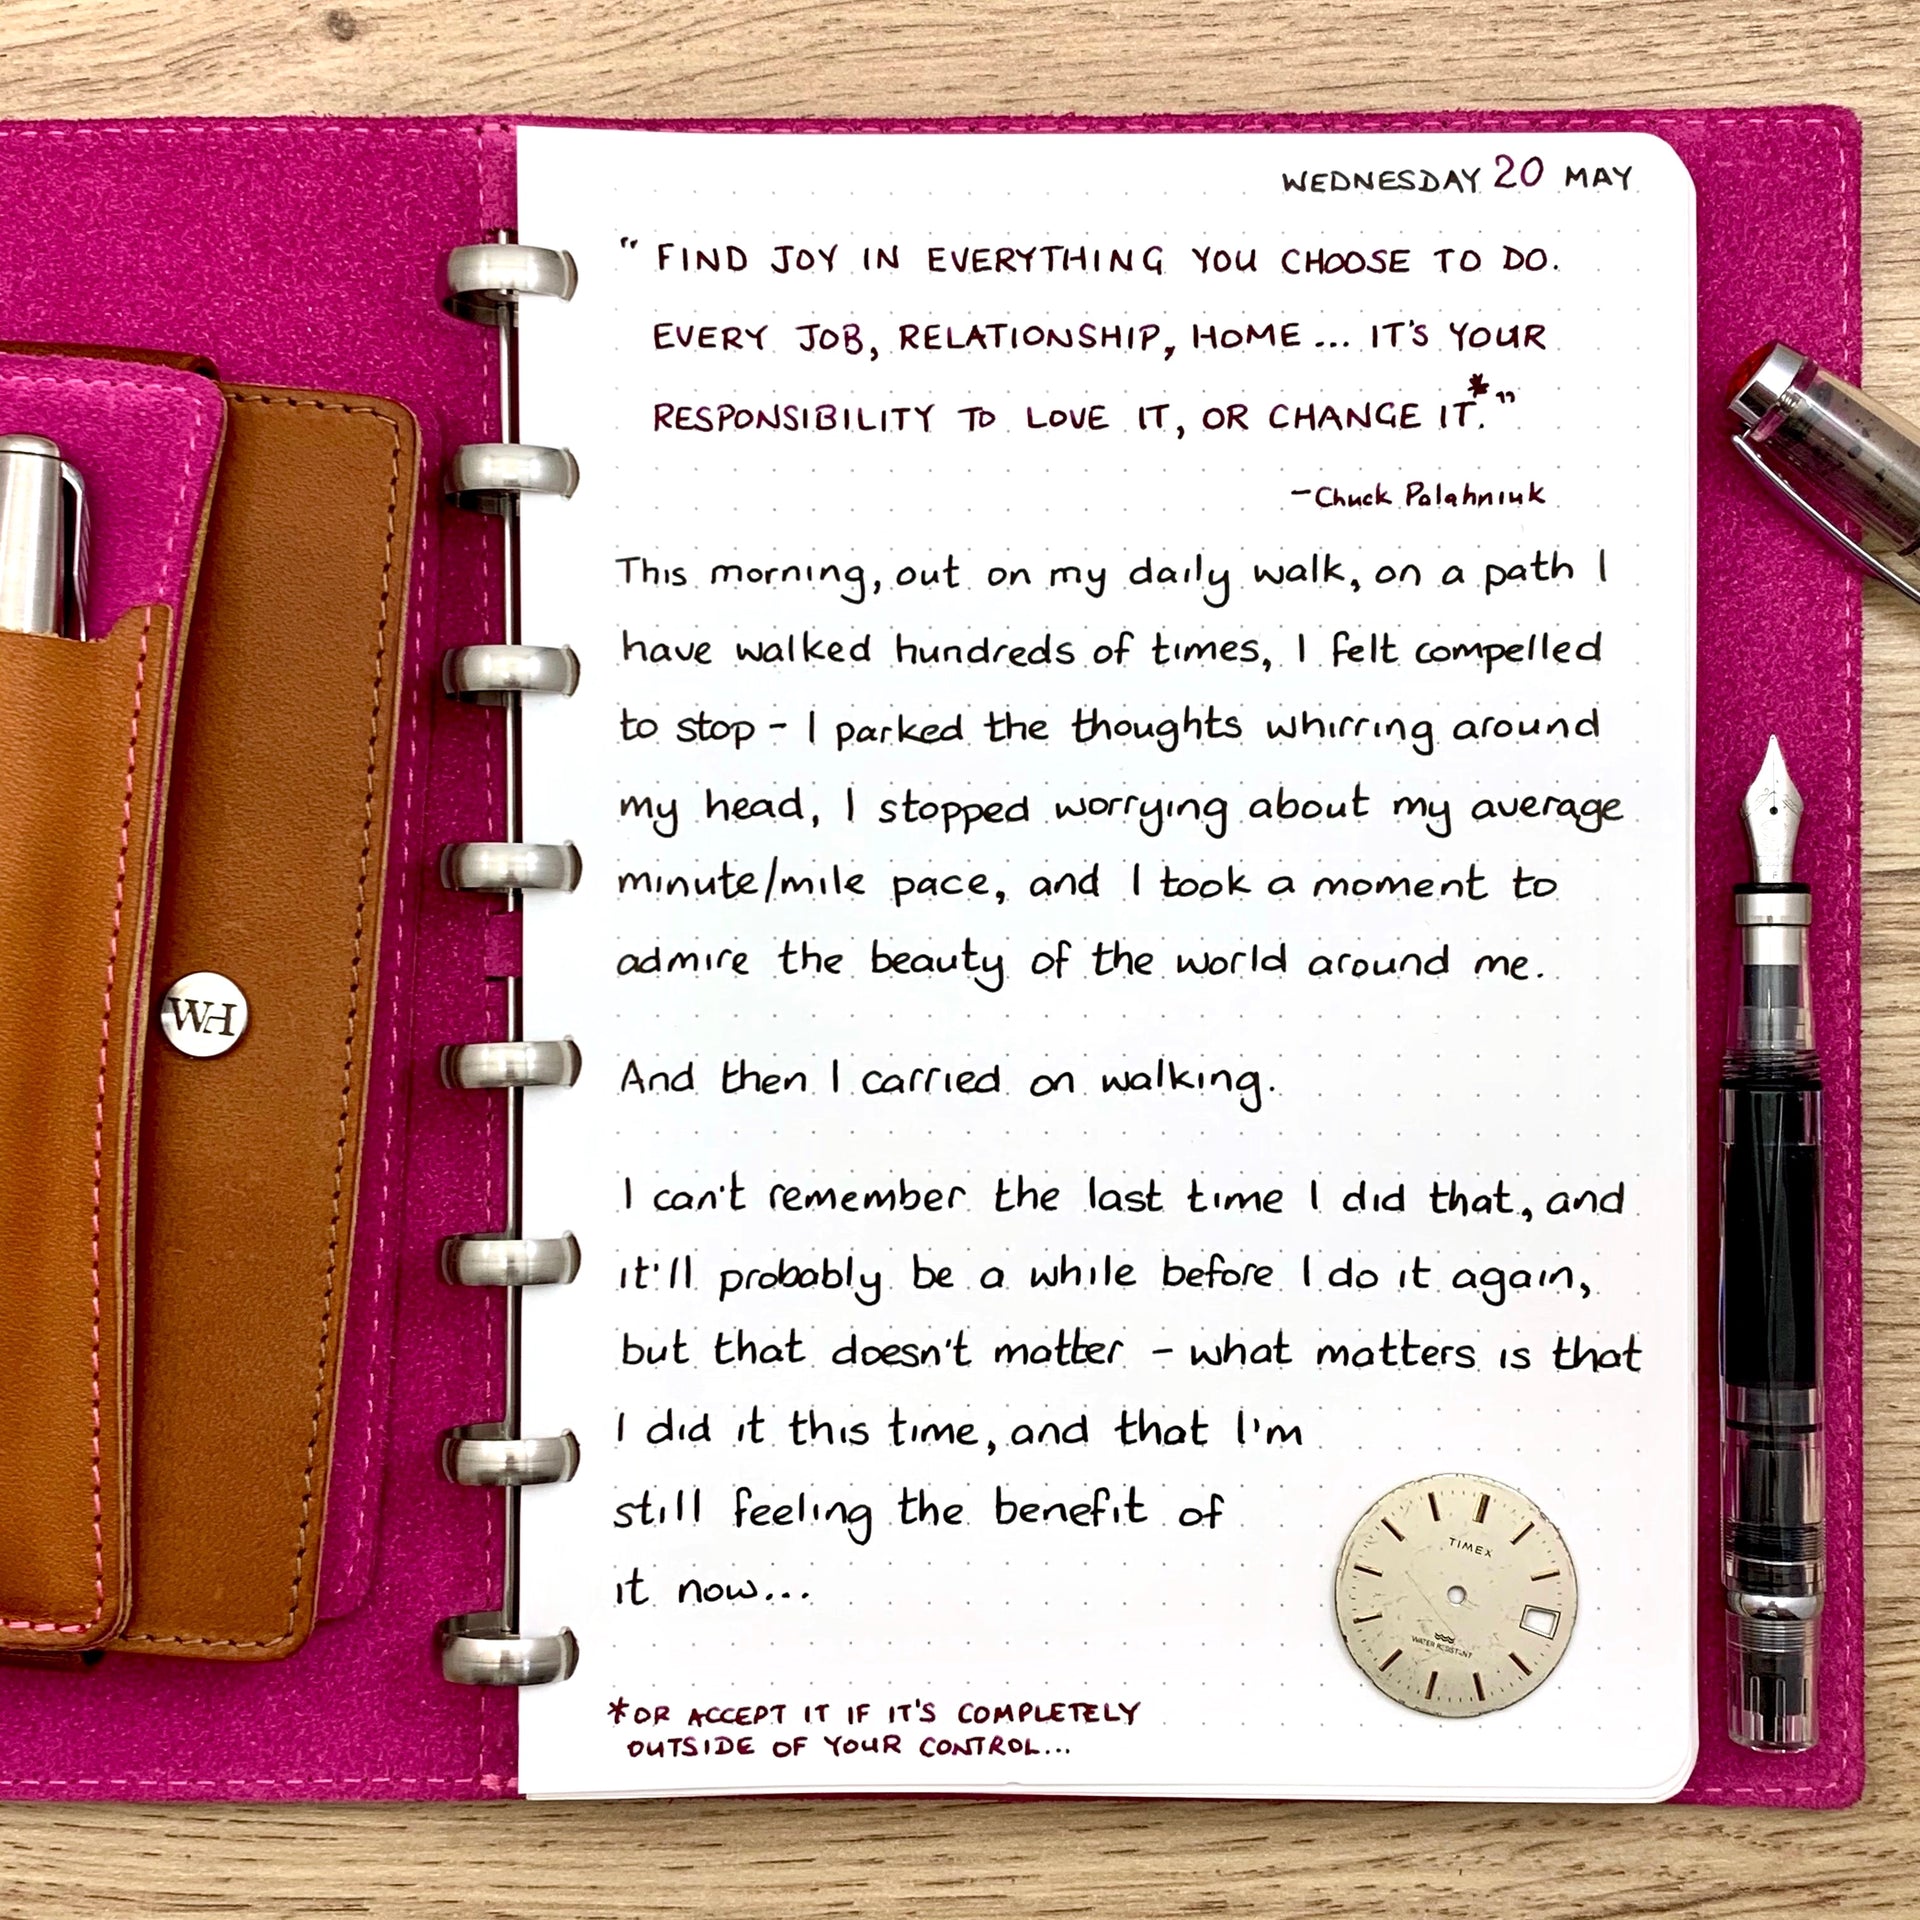 WEDNESDAY 20 MAY
“ FIND JOY IN EVERYTHING YOU CHOOSE TO DO.
EVERY JOB, RELATIONSHIP, HOME... IT'S YOUR
RESPONSIBILITY TO LOVE IT, OR CHANGE IT.*”
-Chuck Palahniuk
This morning, out on my daily walk, on a path I
have walked hundreds of times, I felt compelled
to stop - I parked the thoughts whirring around
my head, I stopped worrying about my average
minute/mile pace, and I took a moment to
admire the beauty of the world around me.
And then I carried on walking.
I can't remember the last time I did that, and
it'll probably be a while before I do it again,
but that doesn't matter - what matters is that
I did it this time, and that I'm
still feeling the benefit of
it now...
*OR ACCEPT IT IF IT'S COMPLETELY
OUTSIDE OF YOUR CONTROL...
TIMEX
WATER RESISTANT
WH